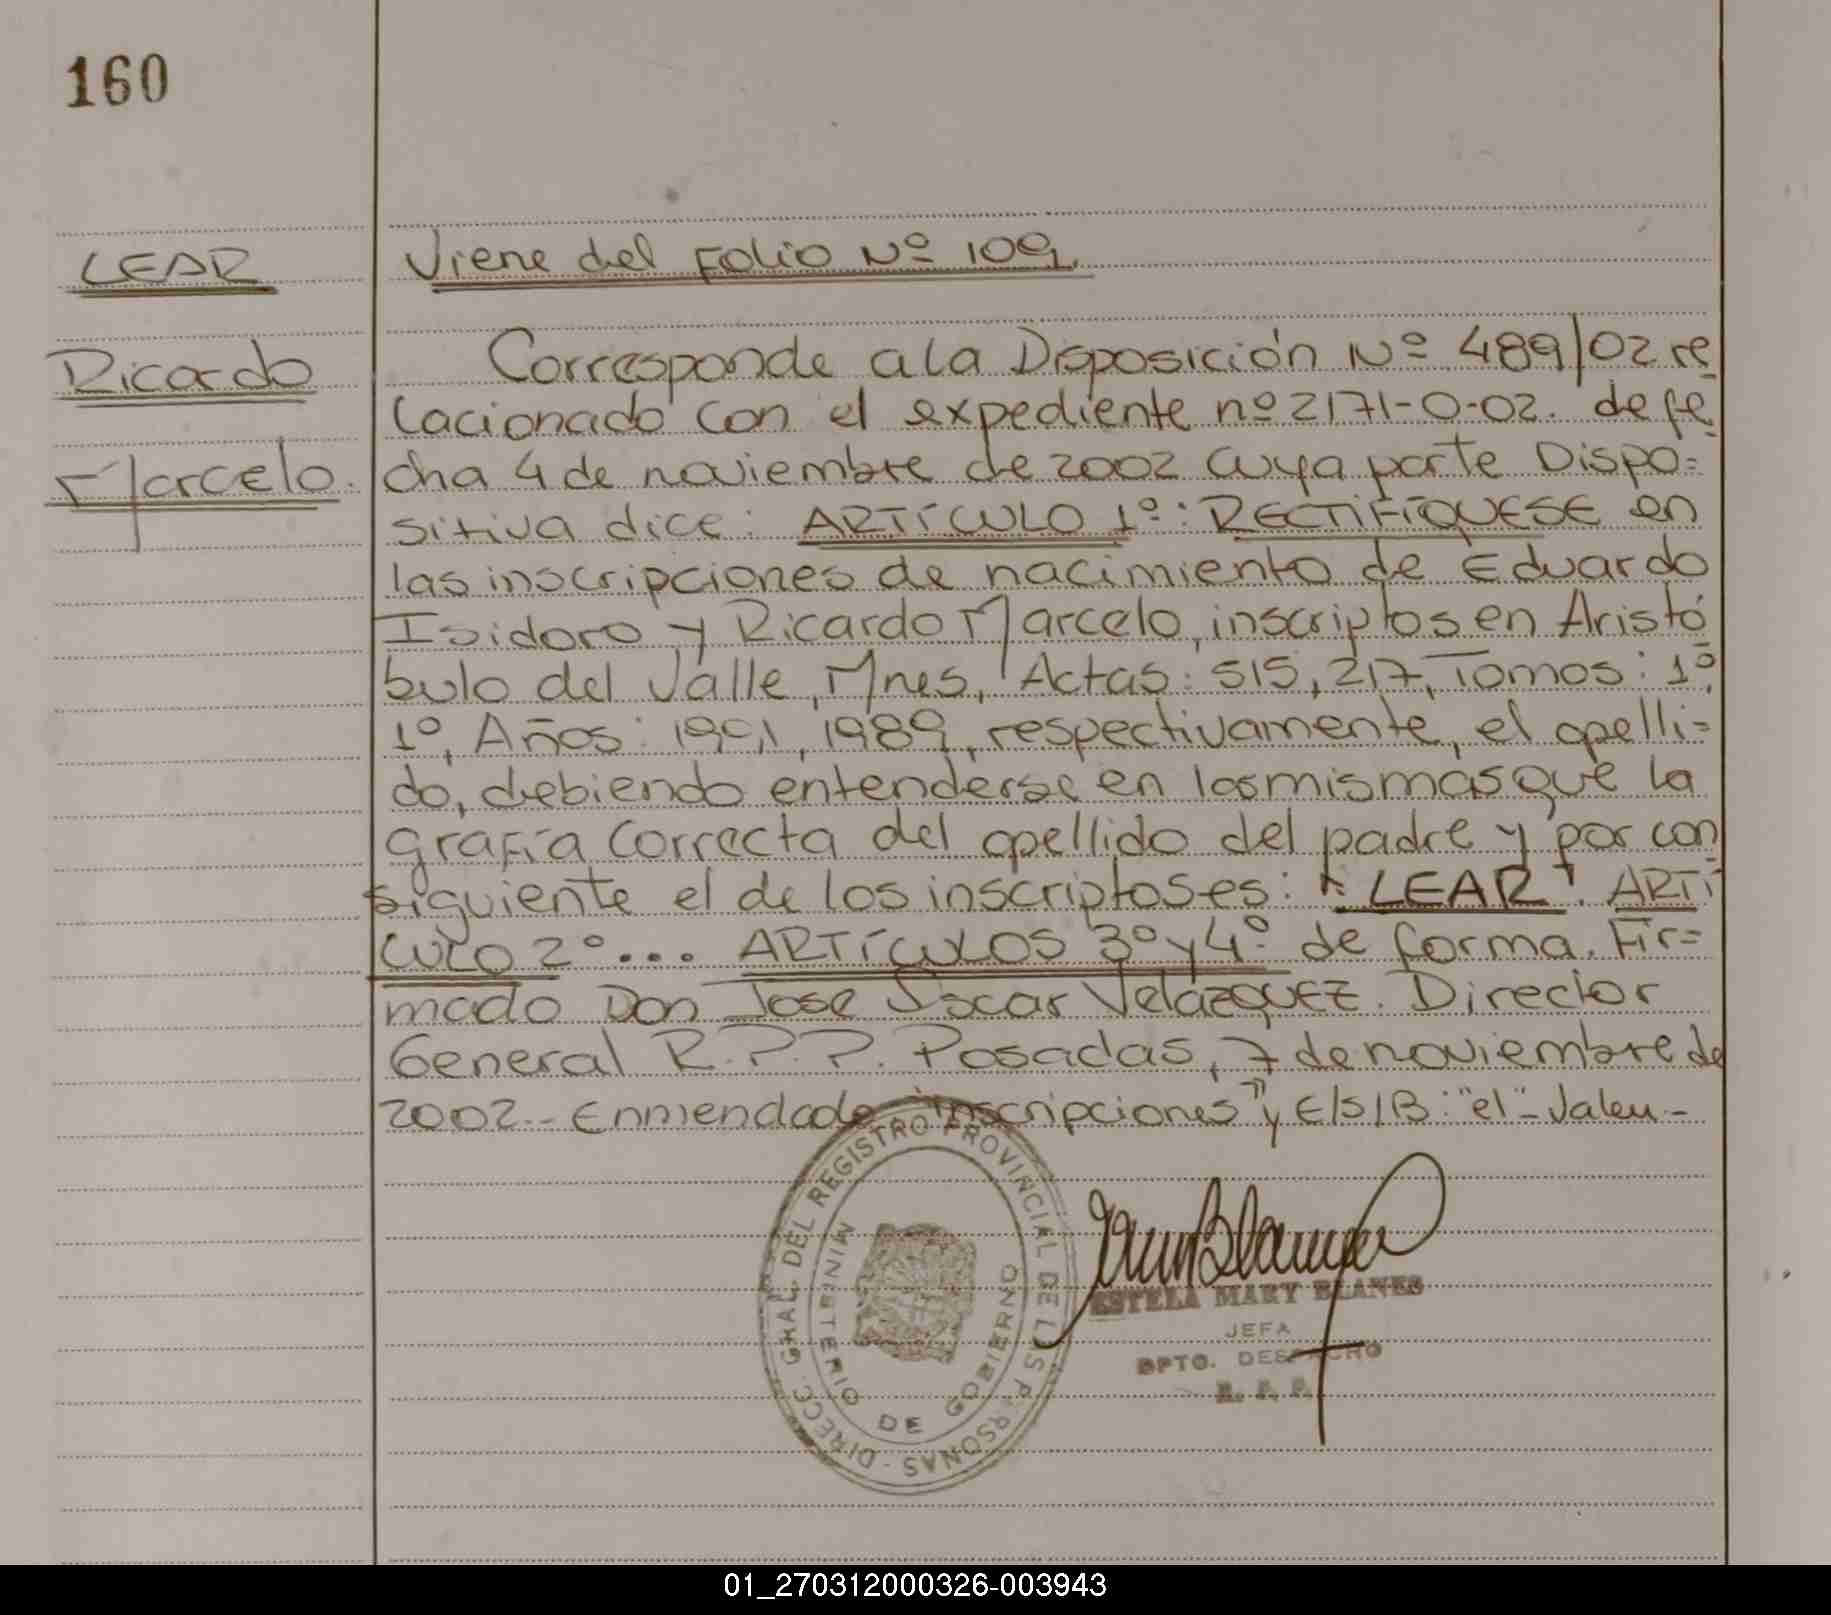 160
LEAR
Ricardo
Marcelo.
Viene del Folio Nº 109.
Corresponde a la Disposición Nº 489/02 re-
lacionado con el expediente nº 2171-0-02. de fe-
cha 4 de noviembre de 2002 cuya parte Dispo=
sitiva dice: ARTÍCULO 1º: RECTIFÍQUESE en
las inscripciones de nacimiento de Eduardo
Isidoro y Ricardo Marcelo, inscriptos en Aristó
bulo del Valle, Mnes, Actas: 515, 217, Tomos: 1º,
1º, Años: 1991, 1989, respectivamente, el apelli=
do, debiendo entenderse en las mismas que la
grafía correcta del apellido del padre y por con-
siguiente el de los inscriptos es: "LEAR". ARTÍ
CULO 2º... ARTÍCULOS 3º y 4º de forma. Fir=
mado Don Jose Oscar Velázquez. Director
General R.P.P. Posadas, 7 de noviembre de
2002.- Enmendado "inscripciones" y E/S/B: "el" - Valen -
DIRECC. GRAL. DEL REGISTRO PROVINCIAL DE LAS PERSONAS -
MINISTERIO DE GOBIERNO
ESTELA MARY BLANES
JEFA
DPTO. DESPACHO
01_270312000326-003943